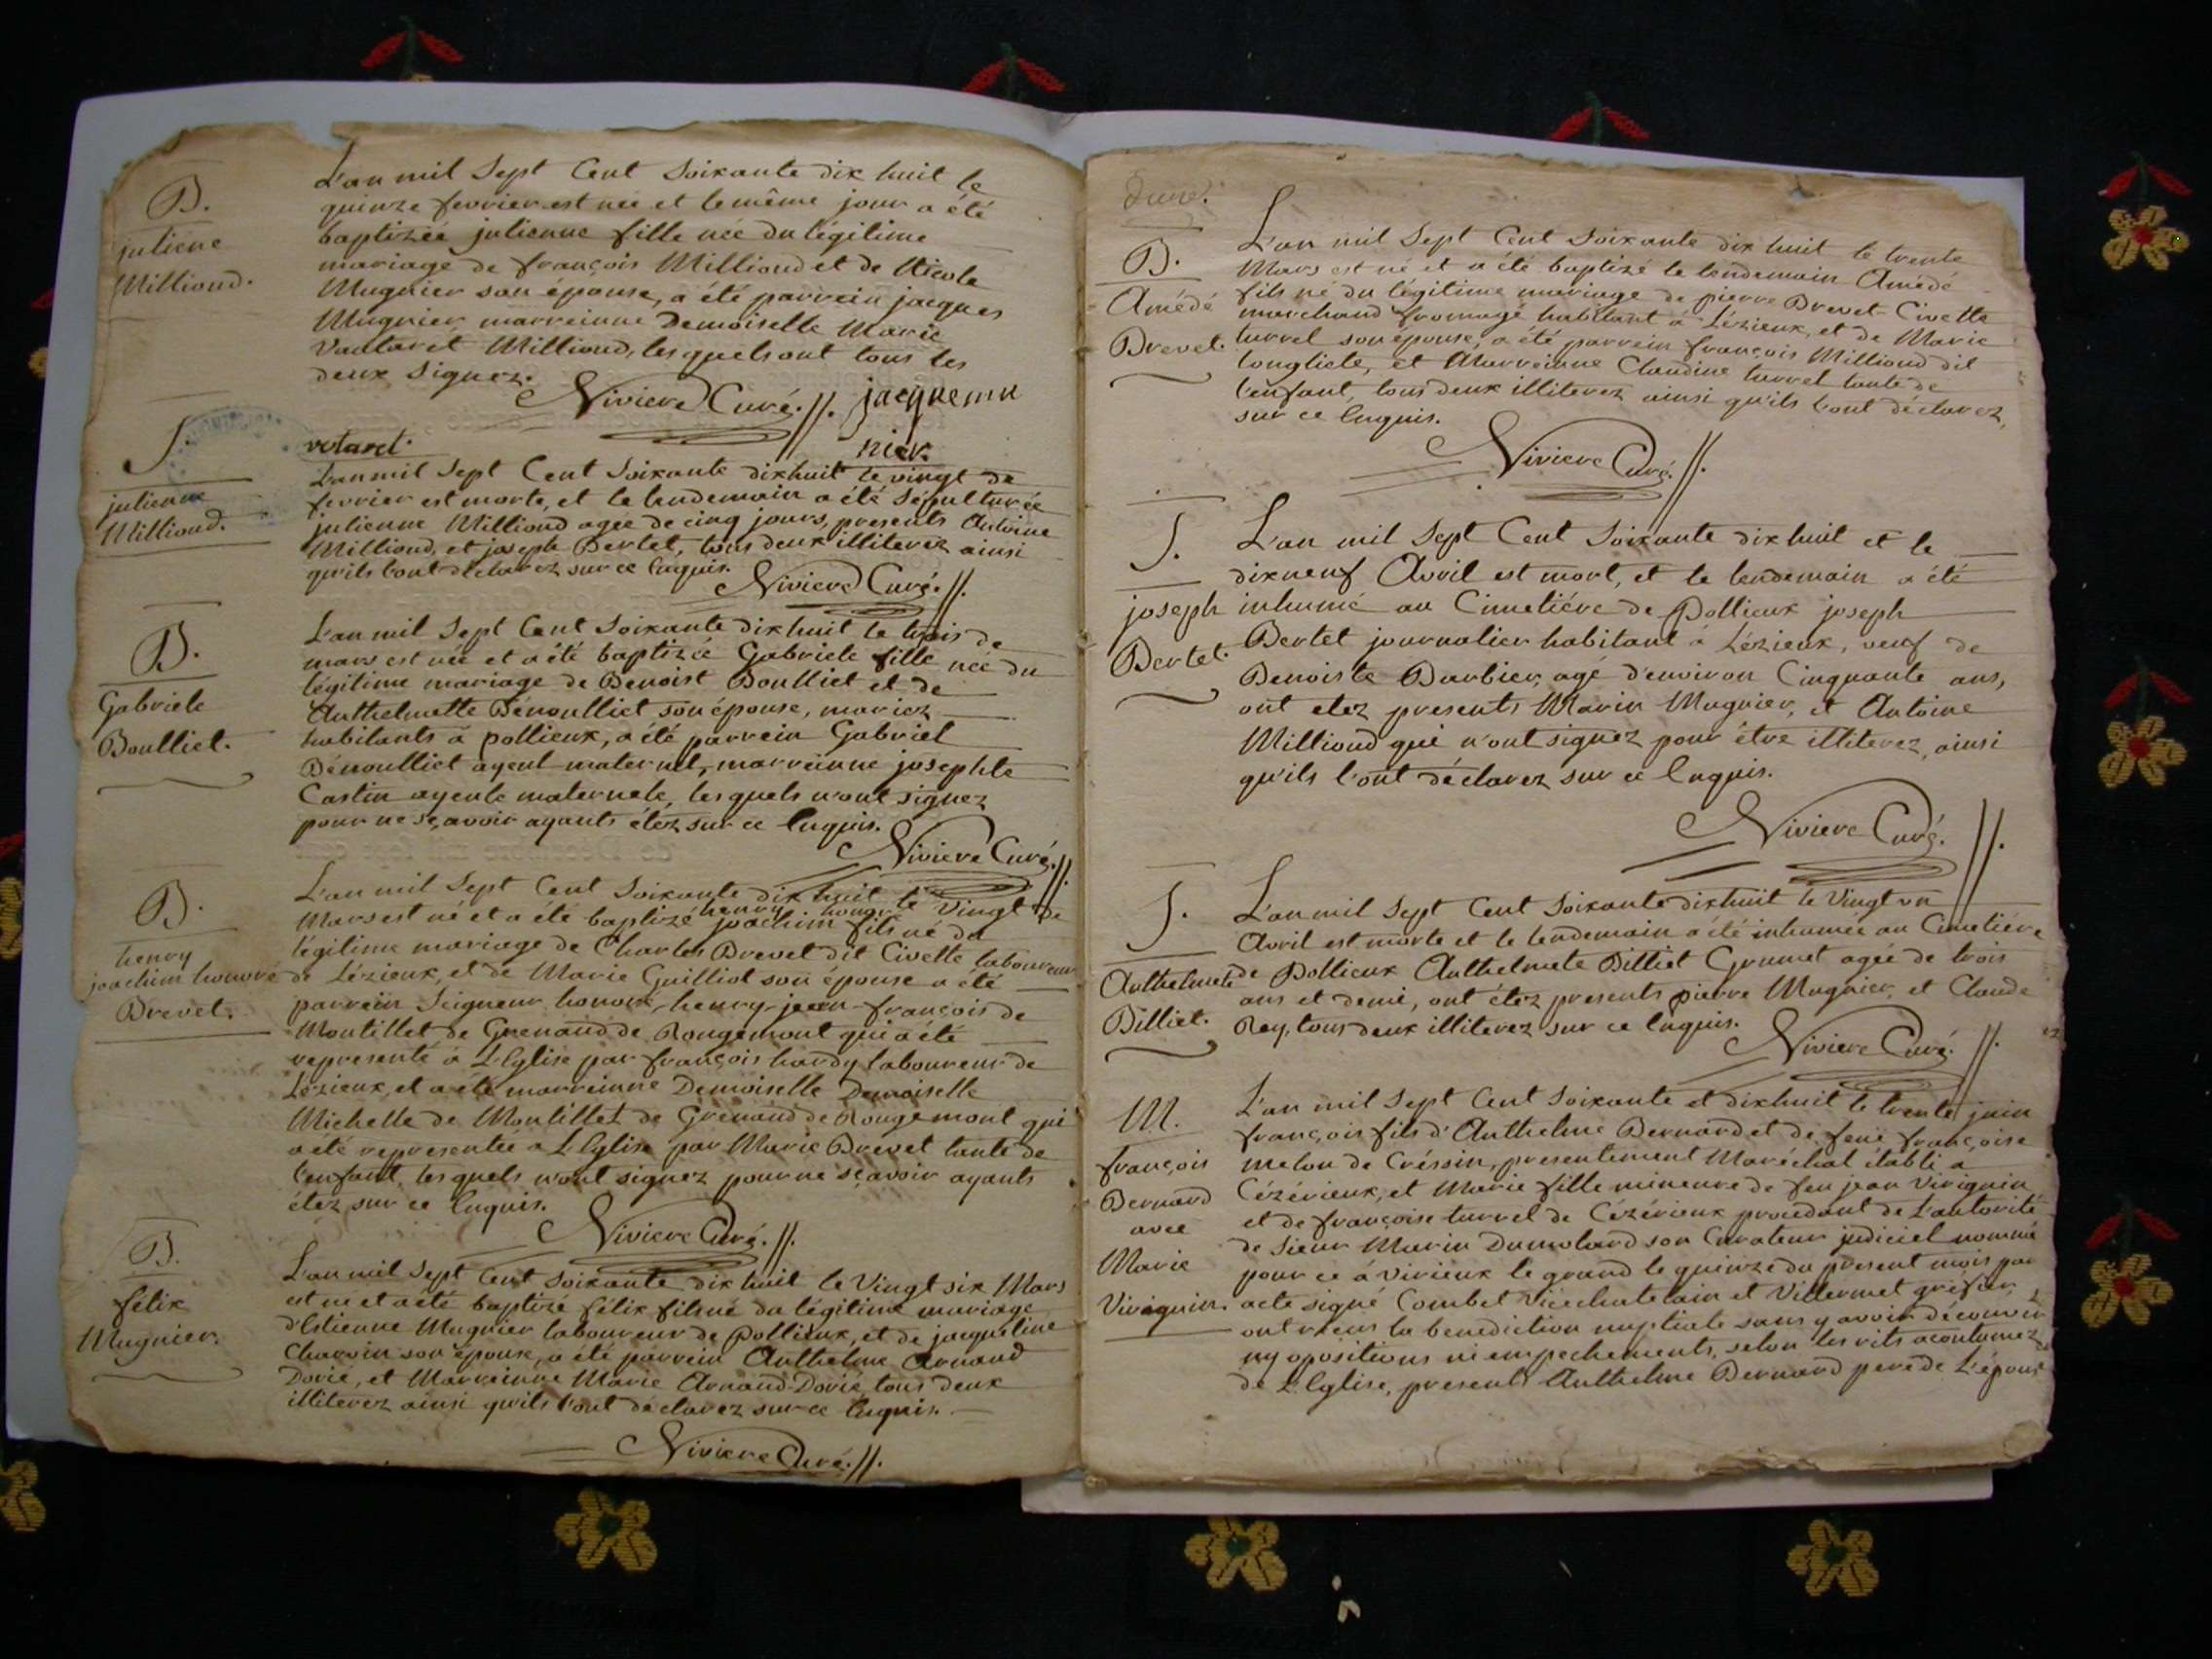 B.
juliene
Milliond.
L'an mil Sept Cent Soixante dix huit le
quinze fevrier est née et le même jour a été
baptizée julienne fille née du légitime
mariage de françois Milliond et de Nicole
Mugnier son épouse, a été parrein jacques
Mugnier marreinne Demoiselle Marie
Vautaret Milliond, les quels ont tous les
deux Signez.
Niviere Curé. jacque mu
nier
votaret
S.
julienne
Milliond.
L'an mil Sept Cent Soixante dixhuit le vingt de
fevrier est morte, et le lendemain a été sépulturée
julienne Milliond agée de cinq jours, presents Antoine
Milliond, et joseph Bertet, tous deux illiterez ainsi
qu'ils l'ont déclarez sur ce Enquis.
Niviere Curé.
B.
Gabriele
Boulliet.
L'an mil Sept Cent Soixante dix huit le trois de
mars est née et a été baptizée Gabriele fille née du
légitime mariage de Benoist Boulliet et de
Anthelmette Bénoulliet son épouse, mariez
habitants à pollieux, a été parrein Gabriel
Bénoulliet ayeul maternel, marreinne josephte
Castin ayeule maternele, les quels n'ont signez
pour ne sçavoir ayants étez sur ce Enquis.
Niviere Curé.
B.
henry
joachim honoré
Brevet.
L'an mil Sept Cent Soixante dix huit le vingt de
Mars est né et a été baptizé henry joachim honoré fils né du
légitime mariage de Charles Brevet dit Civette laboureur
de Lézieux, et de Marie Guilliot son épouse a été
parrein Seigneur honoré-henry-jean-françois de
Montillet de Grenaud de Rougemont qui a été
representé à L'Eglise par françois hardy laboureur de
Lézieux, et a été marreinne Demoiselle Demoiselle
Michelle de Montillet de Grenaud de Rougemont qui
a été representée a L'Eglise par Marie Brevet tante de
l'enfant, les quels n'ont signez pour ne sçavoir ayants
étez sur ce Enquis.
Niviere Curé.
B.
félix
Mugnier.
L'an mil Sept Cent Soixante dix huit le Vingt six Mars
est né et a été baptizé félix fils né du légitime mariage
d'Estienne Mugnier laboureur de Pollieux, et de jacqueline
Charvin son épouse, a été parrein Anthelme Arnaud
Dorié, et Marreinne Marie Arnaud-Dorié, tous deux
illiterez ainsi qu'ils l'ont déclarez sur ce Enquis.
Niviere Curé.
B.
Amédé
Brevet.
L'an mil Sept Cent Soixante dix huit le trente
Mars est né et a été baptizé le lendemain Amédé
fils né du légitime mariage de pierre Brevet-Civette
marchand fromagé habitant à Lézieux, et de Marie
turrel son épouse, a été parrein françois Milliond dit
longlicle, et Marreinne Claudine turrel tante de
l'enfant, tous deux illiterez ainsi qu'ils l'ont déclarez,
sur ce Enquis.
Niviere Curé.
S.
joseph
Bertet.
L'an mil Sept Cent Soixante dix huit et le
dixneuf Avril est mort, et le lendemain a été
inhumé au Cimetiére de Pollieux joseph
Bertet journalier habitant à Lézieux, veuf de
Benoiste Barbier, agé d'environ Cinquante ans,
ont etez presents Marin Mugnier, et Antoine
Milliond qui n'ont signez pour être illiterez, ainsi
qu'ils l'ont déclarez sur ce Enquis.
Niviere Curé.
S.
Anthelmete
Billiet.
L'an mil Sept Cent Soixante dixhuit le Vingt un
Avril est morte et le lendemain a été inhumée au Cimetiére
de Pollieux Anthelmete Billiet Grumet agée de trois
ans et demi, ont étez presents pierre Mugnier, et Claude
Rey, tous deux illiterez sur ce Enquis.
Niviere Curé.
M.
françois
Bernard
avec
Marie
Viviquin.
L'an mil Sept Cent Soixante et dixhuit le trente juin
françois fils d'Anthelme Bernard et de feüe françoise
melon de Créssin, presentement Maréchal établi a
Cézérieux, et Marie fille mineure de feu jean Viviquin
et de françoise turrel de Cézérieux procedant de L'autorité
de Sieur Marin Dumolard son Curateur judiciel nommé
pour ce à Virieux le grand le quinze du present mois par
acte signé Combet Vicechatelain et Villermet gréfier,
ont reçus la benediction nuptiale sans y avoir découvert
ny opositions ni empechements, selon les rits acoutumez
de L'Eglise, presents Anthelme Bernard pere de L'épous